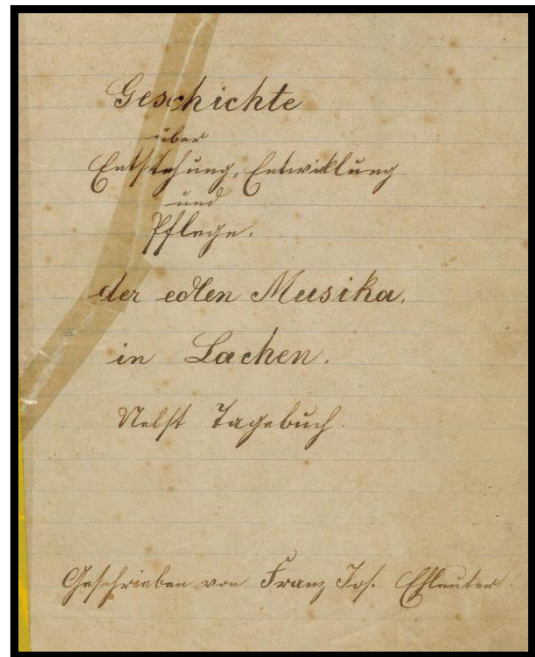 Geschichte
über
Entstehung, Entwicklung
und
Pflege.
der edlen Musika,
in Lachen.
Nebst Tagebuch.
Geschrieben von Franz Jos.